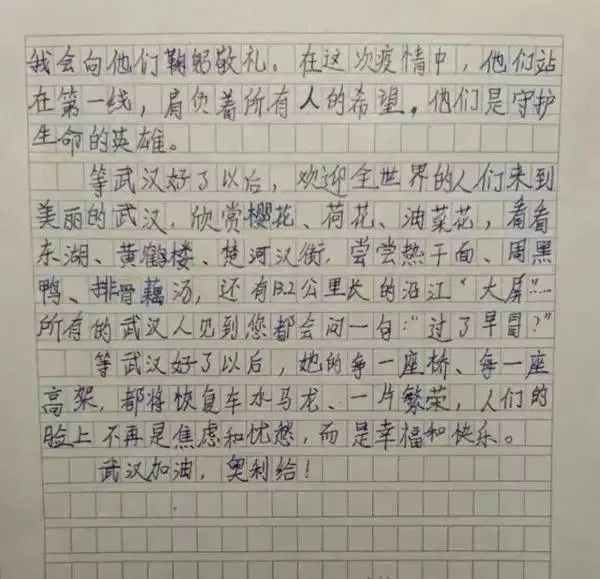 我会向他们鞠躬敬礼。在这次疫情中，他们站
在第一线，肩负着所有人的希望，他们是守护
生命的英雄。
等武汉好了以后，欢迎全世界的人们来到
美丽的武汉，欣赏樱花、荷花、油菜花，看看
东湖、黄鹤楼、楚河汉街，尝尝热干面、周黑
鸭、排骨藕汤，还有13.2公里长的沿江“大屏”……
所有的武汉人见到您都会问一句：“过了早冒？”
等武汉好了以后，她的每一座桥、每一座
高架，都将恢复车水马龙、一片繁荣，人们的
脸上不再是焦虑和忧愁，而是幸福和快乐。
武汉加油，奥利给！